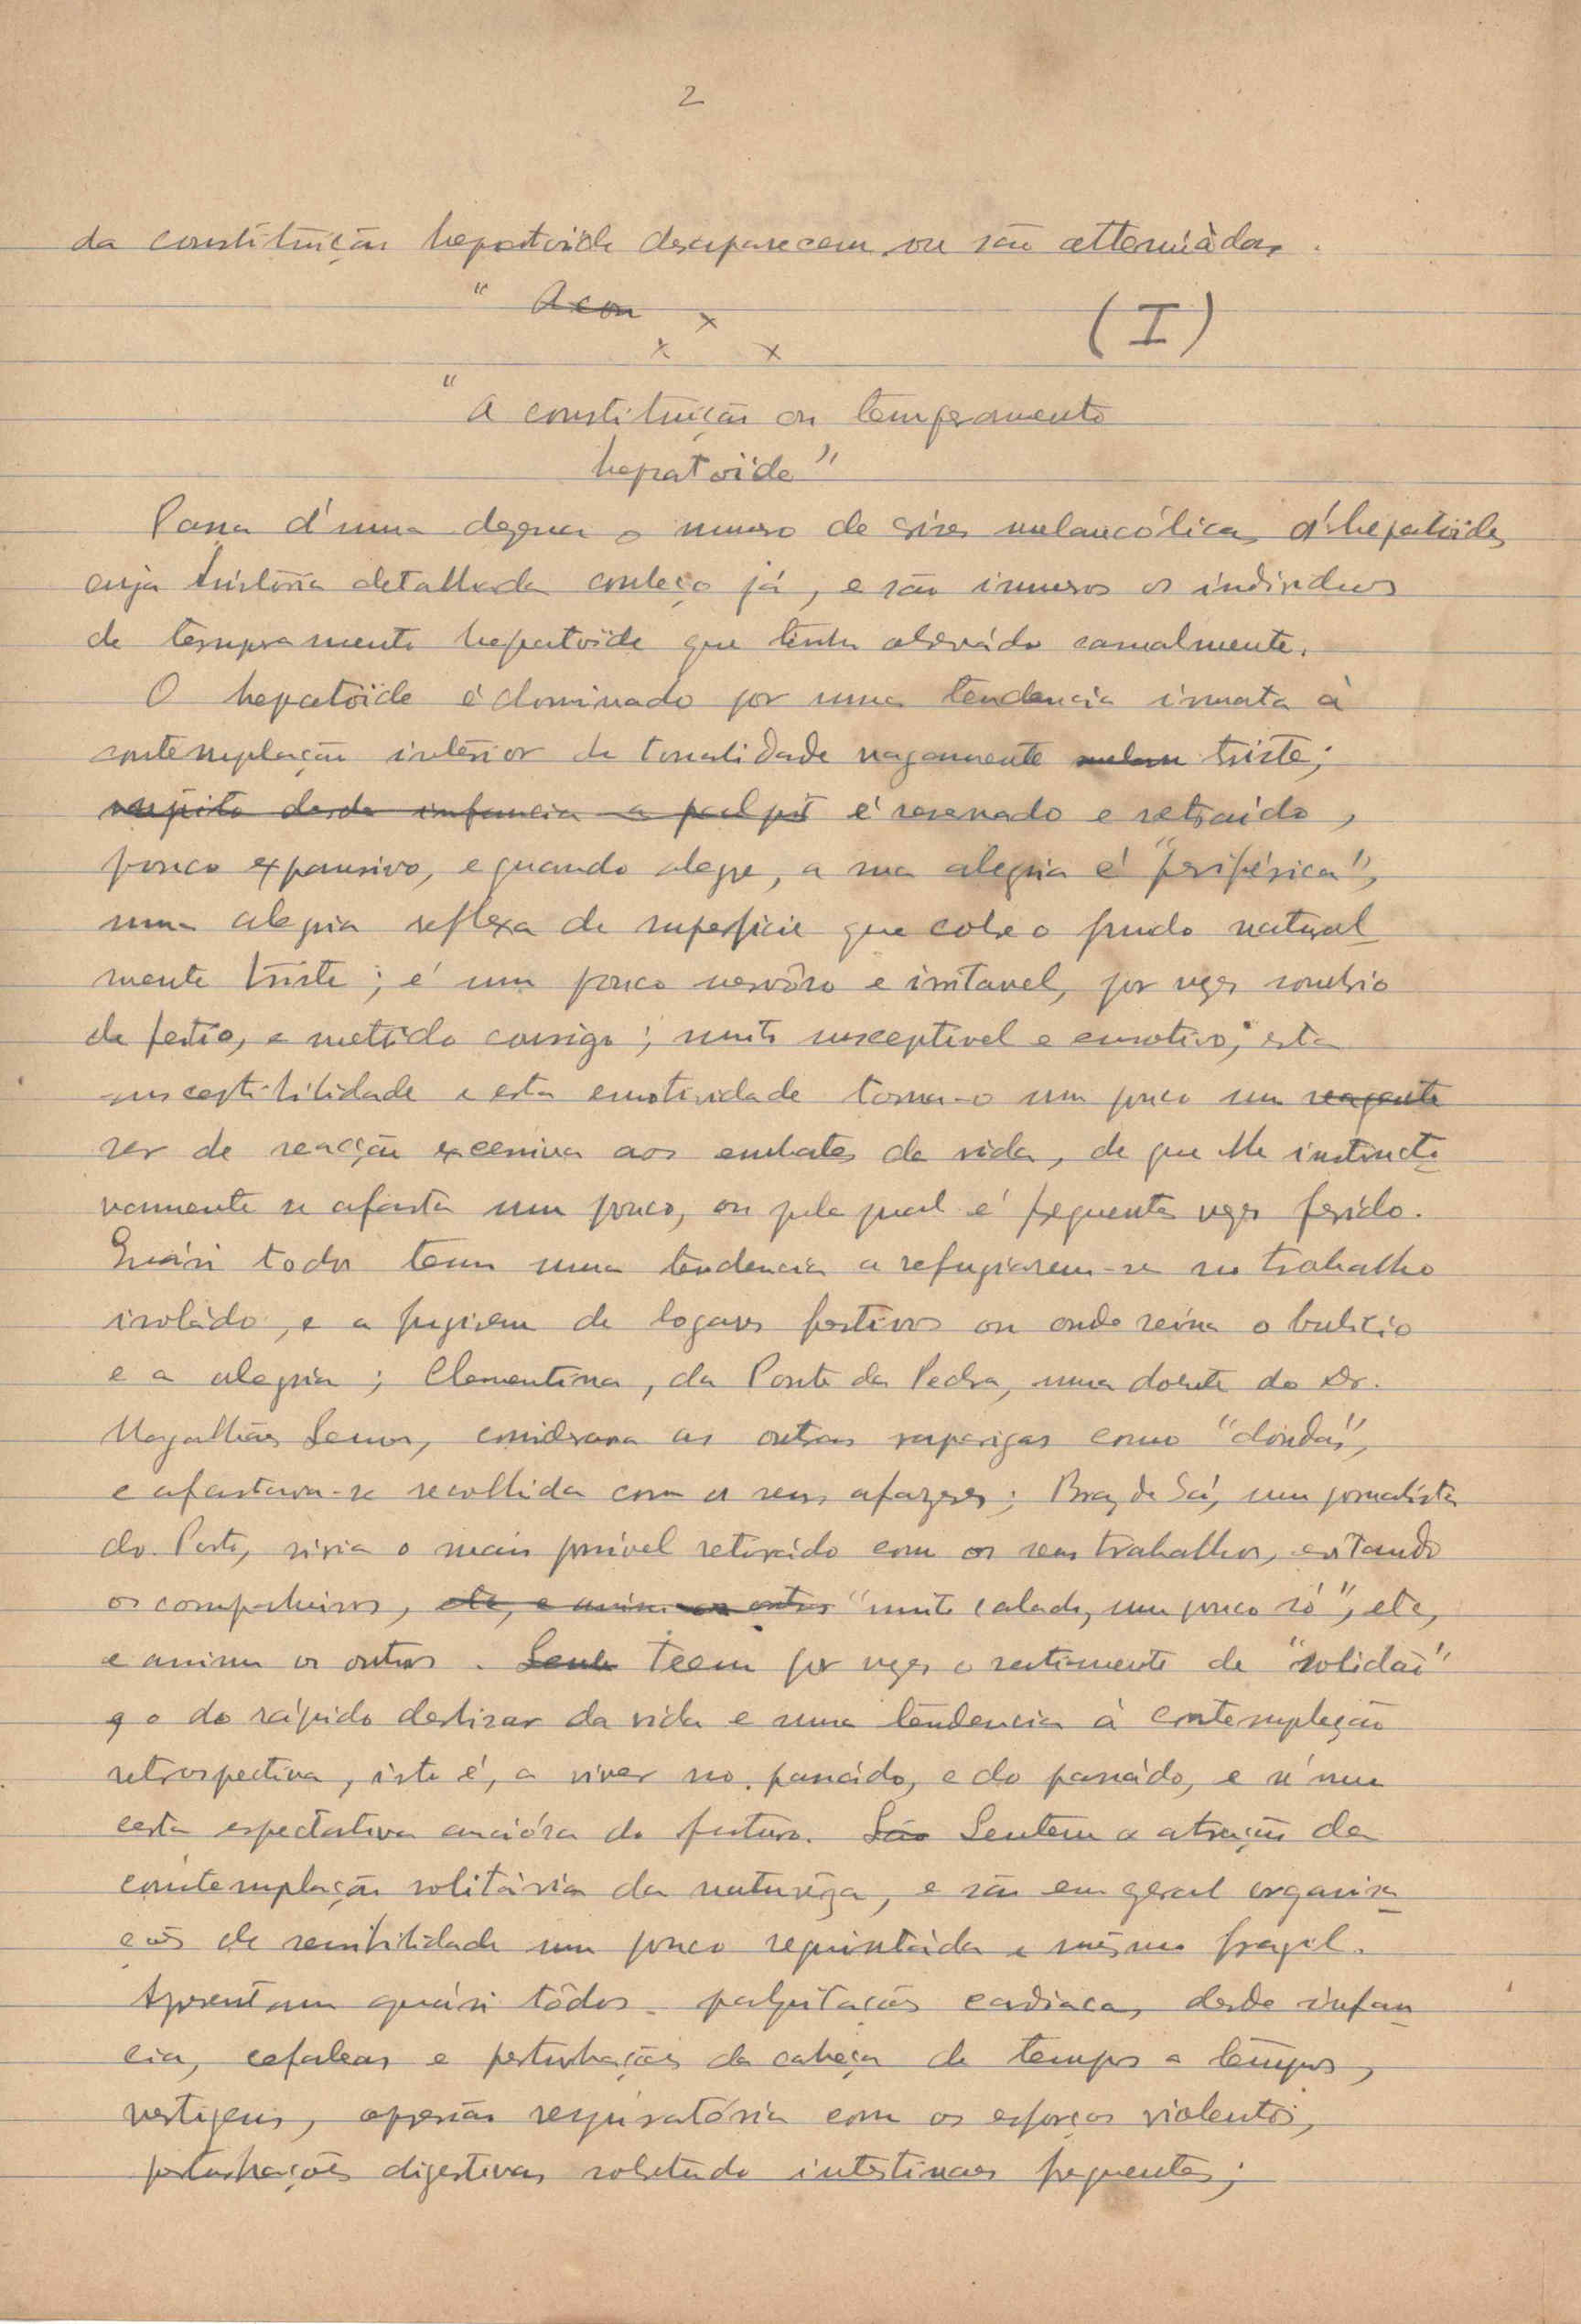 2
da constituição hepatoide desaparecem ou são attenuàdas.
" A con
x
x x
(I)
"A constituição ou temperamento
hepatoide"
Passa d'uma dezena o numero de crises melancólicas d'hepatoides
cuja história detalhada conheço já, e são inumeros os individuos
de temperamento hepatoïde que tenho observádo casualmente.
O hepatoïde é dominado por uma tendencia innata à
contemplação interior de tonalidade vagamente melan triste;
desde infancia a é reservado e retraido,
pouco expansivo, e quando alegre, a sua alegria é "periférica",
uma alegria reflexa de superficie que cobre o fundo natural-
mente triste; é um pouco nervôso e irritavel, por vezes sombrio
de feitio, e metido comsigo; muito susceptivel e emotivo; esta
susceptibilidade e esta emotividade torna-o um pouco um reagente
ser de reacção excessiva aos embates da vida, de que elle instincti-
vamente se afasta um pouco, ou pela qual é frequentes vezes ferido.
Quási todos teem uma tendencia a refugiarem-se no trabalho
isolàdo, e a fugirem de logares festivos ou onde reina o bulicio
e a alegria; Clementina, da Ponte da Pedra, uma doente do Dr.
Magalhães Lemos, considerava as outras raparigas como "doidas",
e afastava-se recolhida com os seus afazeres; Braz de Sá, um jornalista
do Porto, vivia o mais possivel retiràdo com os seus trabalhos, evitando
os companheiros, etc, e assim os outros "muito calado, um pouco só", etc,
e assim os outros. Teem por vezes o sentimento de "solidão"
e o do rápido deslisar da vida e uma tendencia à contemplação
retrospectiva, isto é, a viver no passàdo, e do passàdo, e n'uma
certa espectativa anciósa do futuro. São Sentem a atração da
contemplação solitária da naturêza, e são em geral organisa-
ções de sensibilidade um pouco requintàda e mêsmo fragil.
Apresentam quási tôdos palpitações cardiacas, desde infan-
cia, cefaleas e perturbações da cabeça de tempos a tempos,
vertigens, opressão respiratória com os esforços violentos,
perturbações digestivas sobretudo intestinaes frequentes;